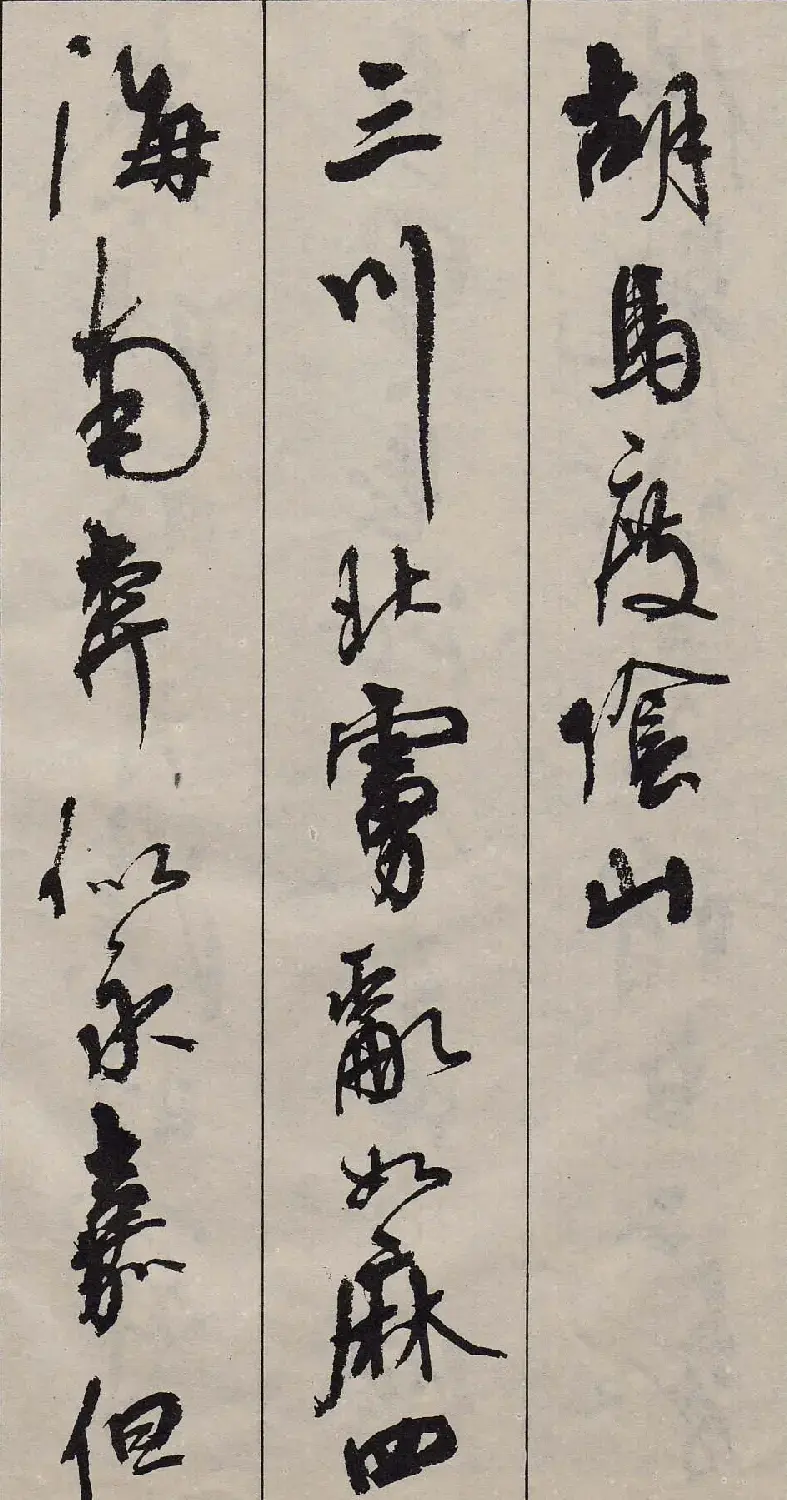 胡馬度陰山
三川北虜亂如麻四
海南奔似永嘉但